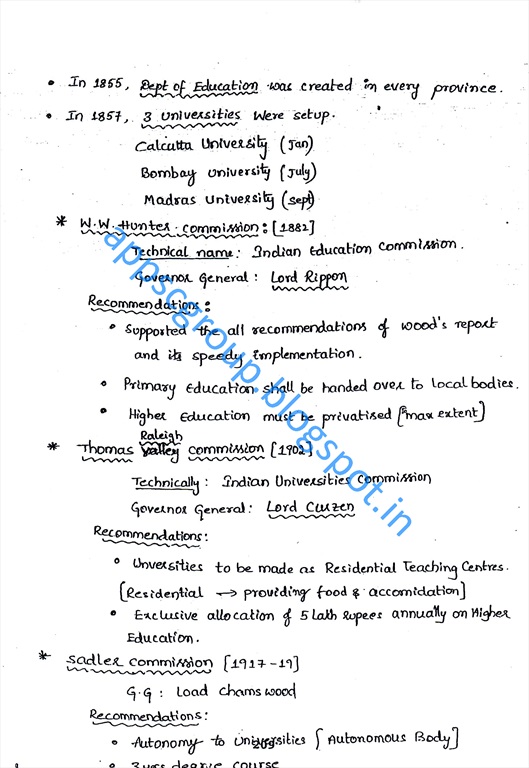 • In 1855, Dept of Education was created in every province.
• In 1857, 3 Universities were setup.
Calcutta University (Jan)
Bombay University (July)
Madras University (Sept)
* W.W. Hunter commission: [1882]
Technical name: Indian Education Commission.
Governor General: Lord Rippon
Recommendations:
• Supported the all recommendations of wood's report
and its speedy implementation.
• Primary Education shall be handed over to local bodies.
• Higher Education must be privatised [max extent]
Raleigh
* Thomas Valley commission [1902]
Technically: Indian Universities Commission
Governor General: Lord Curzen
Recommendations:
• Unversities to be made as Residential Teaching Centres.
[Residential → providing food & accomidation]
• Exclusive allocation of 5 Lakh rupees annually on Higher
Education.
* Sadler commission [1917-19]
G.G: Load Chamswood
Recommendations:
• Autonomy to Universities [Autonomous Body]
• 3 yrs degree course
appscgroup.blogspot.in